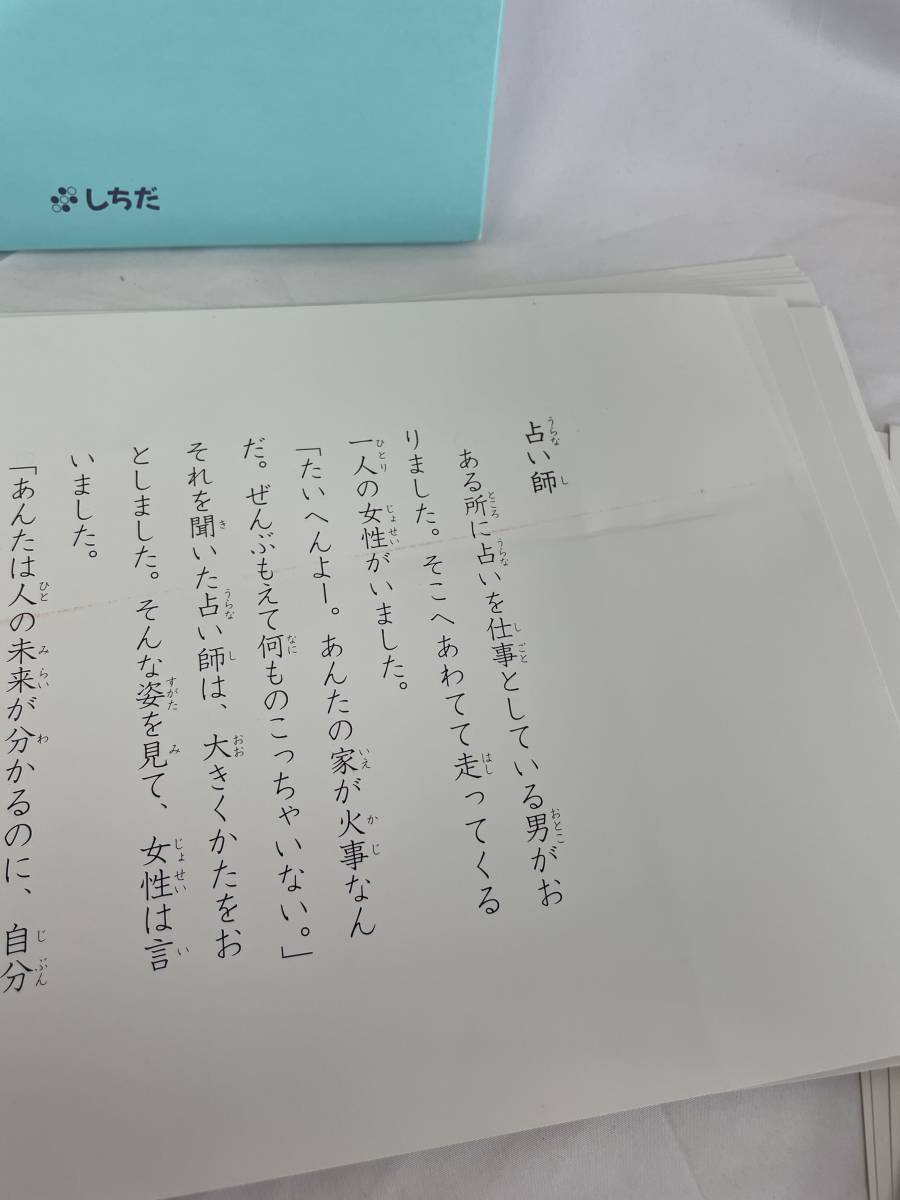 しちだ
占い師
ある所に占いを仕事としている男がお
りました。そこへあわてて走ってくる
一人の女性がいました。
「たいへんよー。あんたの家が火事なん
だ。ぜんぶもえて何ものこっちゃいない。」
それを聞いた占い師は、大きくかたをお
としました。そんな姿を見て、女性は言
いました。
「あんたは人の未来が分かるのに、自分